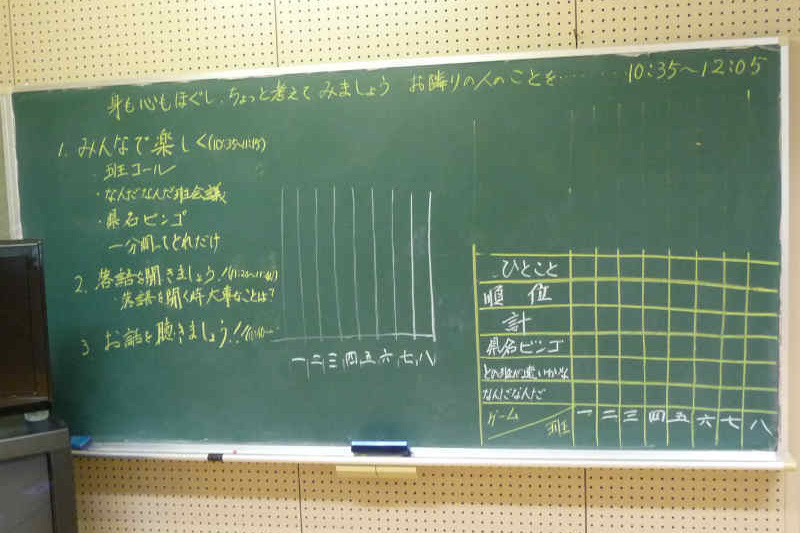 身も心もほぐし、ちょっと考えてみましょう お隣りの人のことを…… 10:35〜12:05
1. みんなで楽しく(10:35〜11:15)
・班コール
・なんだなんだ班会議
・県名ビンゴ
一分間ってどれだけ
2. 落語を聞きましょう!
・落語を聞く時大事なことは?
3. お話を聴きましょう!!
一 二 三 四 五 六 七 八
ひとこと
順 位
計
県名ビンゴ
どの班が速いかな
なんだなんだ
ゲーム 班 一 二 三 四 五 六 七 八